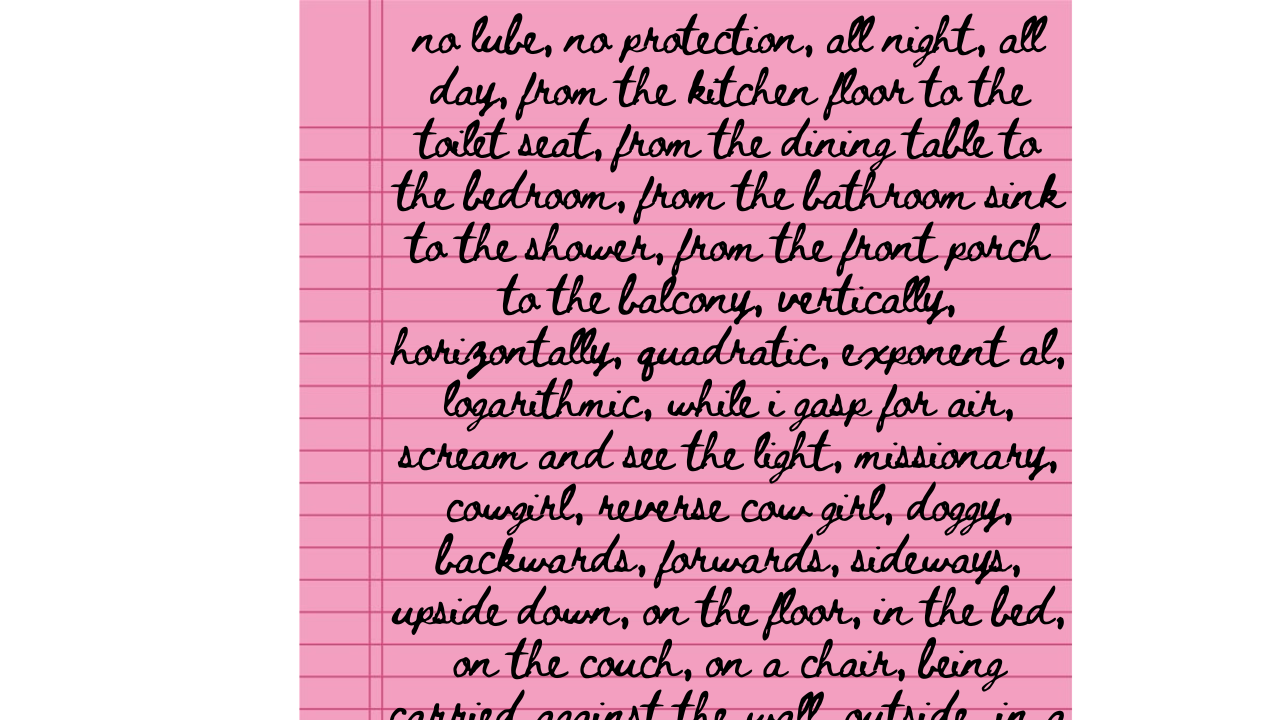 no lube, no protection, all night, all
day, from the kitchen floor to the
toilet seat, from the dining table to
the bedroom, from the bathroom sink
to the shower, from the front porch
to the balcony, vertically,
horizontally, quadratic, exponent al,
logarithmic, while i gasp for air,
scream and see the light, missionary,
cowgirl, reverse cow girl, doggy,
backwards, forwards, sideways,
upside down, on the floor, in the bed,
on the couch, on a chair, being
carried against the wall, outside, in a